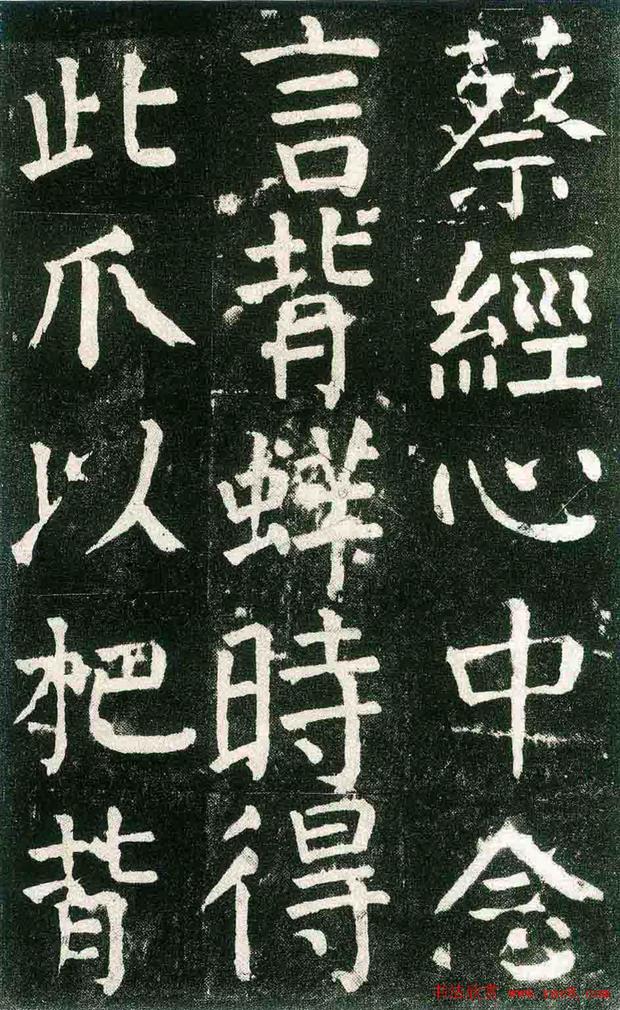 蔡經心中念
言背蛘時得
此爪以杷背
书法欣赏 www.yac8.com